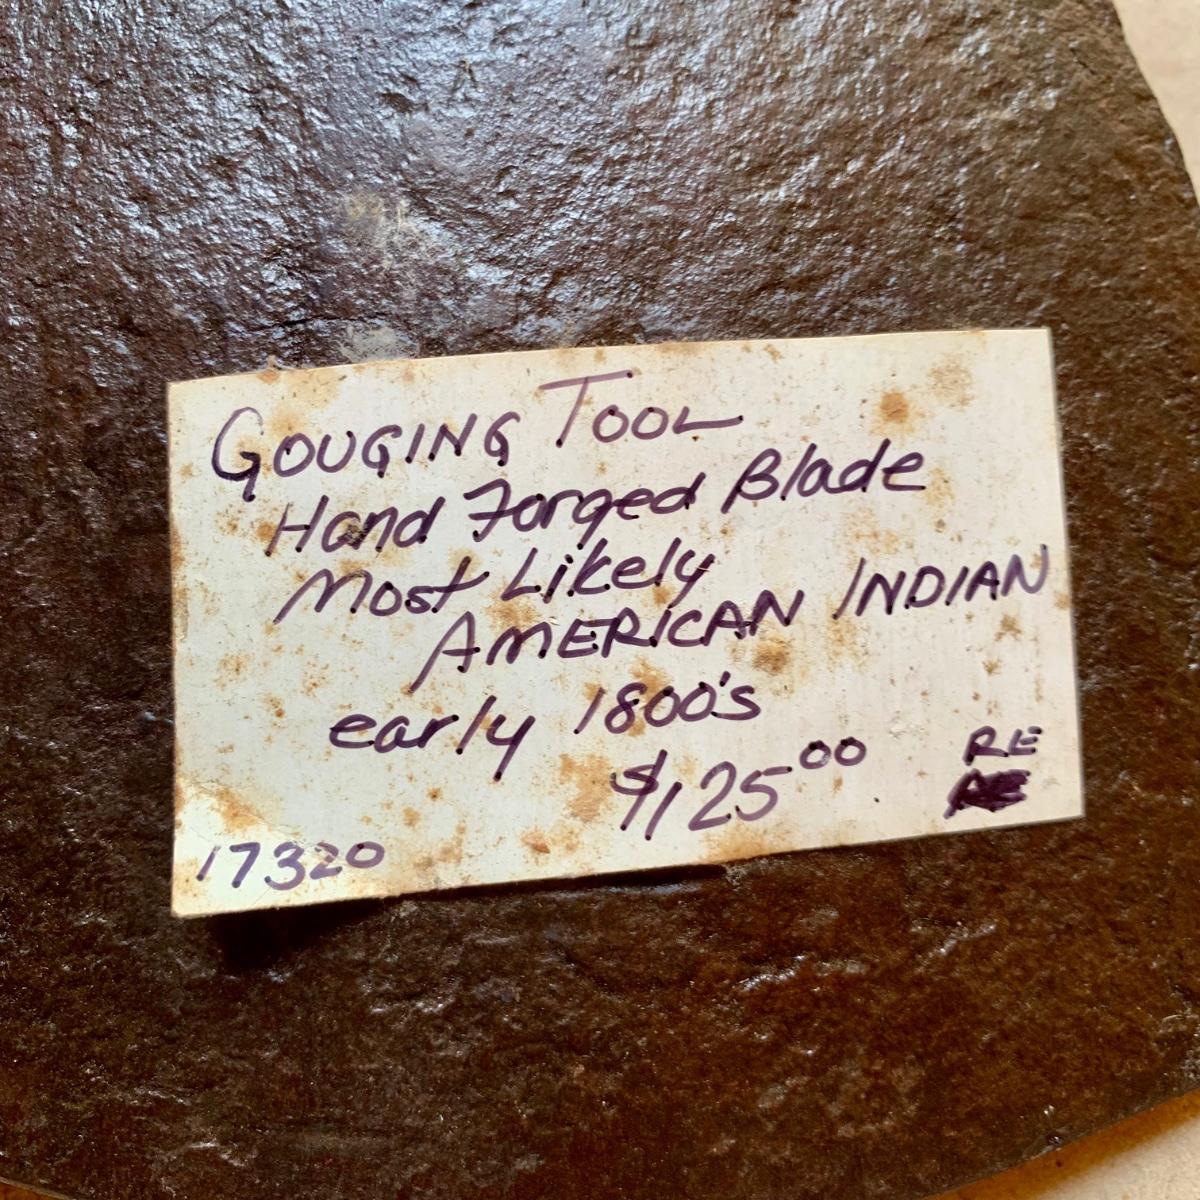 GOUGING TOOL
Hand Forged Blade
Most Likely
AMERICAN INDIAN
early 1800's
$125.00
RE
17320